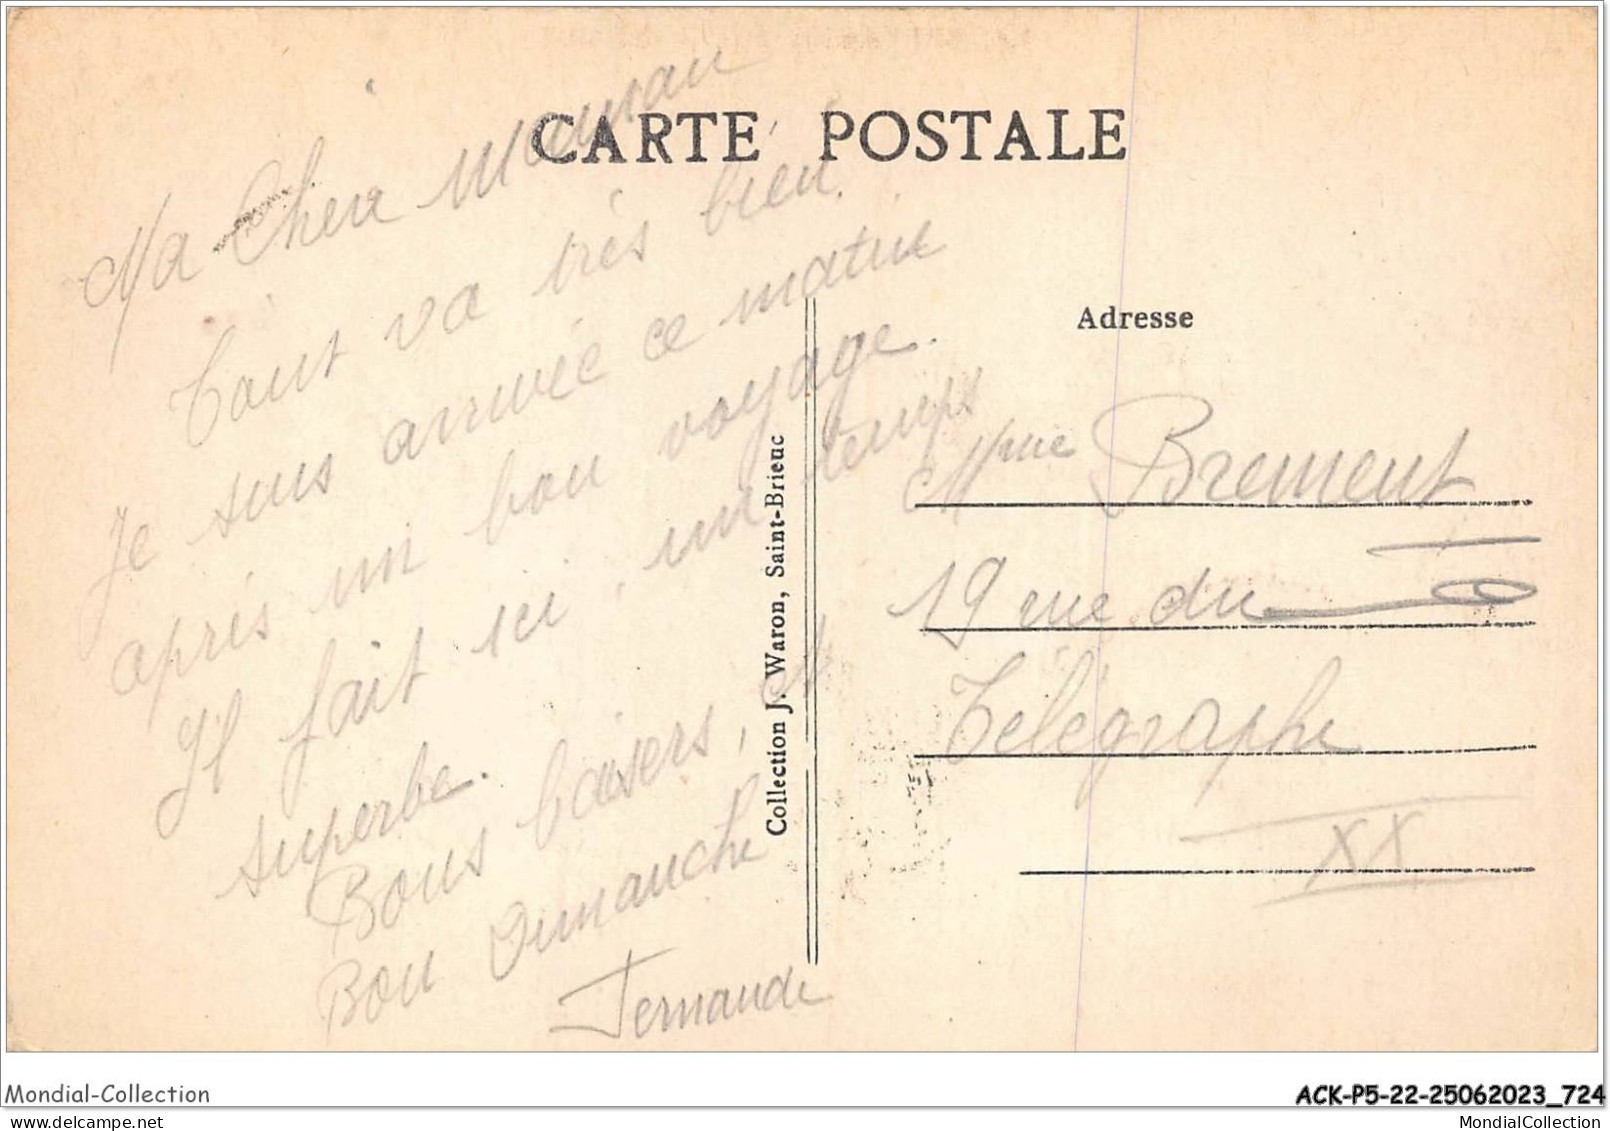 CARTE POSTALE
Ma Chère Maman
Tout va très bien.
Je suis arrivée ce matin
après un bon voyage.
Il fait ici, un temps
superbe.
Bons baisers, et
Bon Dimanche
Fernande
Collection J. Waron, Saint-Brieuc
Adresse
Mme Brement
19 rue du
Télégraphe
XX
Mondial-Collection
ACK-P5-22-25062023_724
mondial-collection.com
MondialCollection